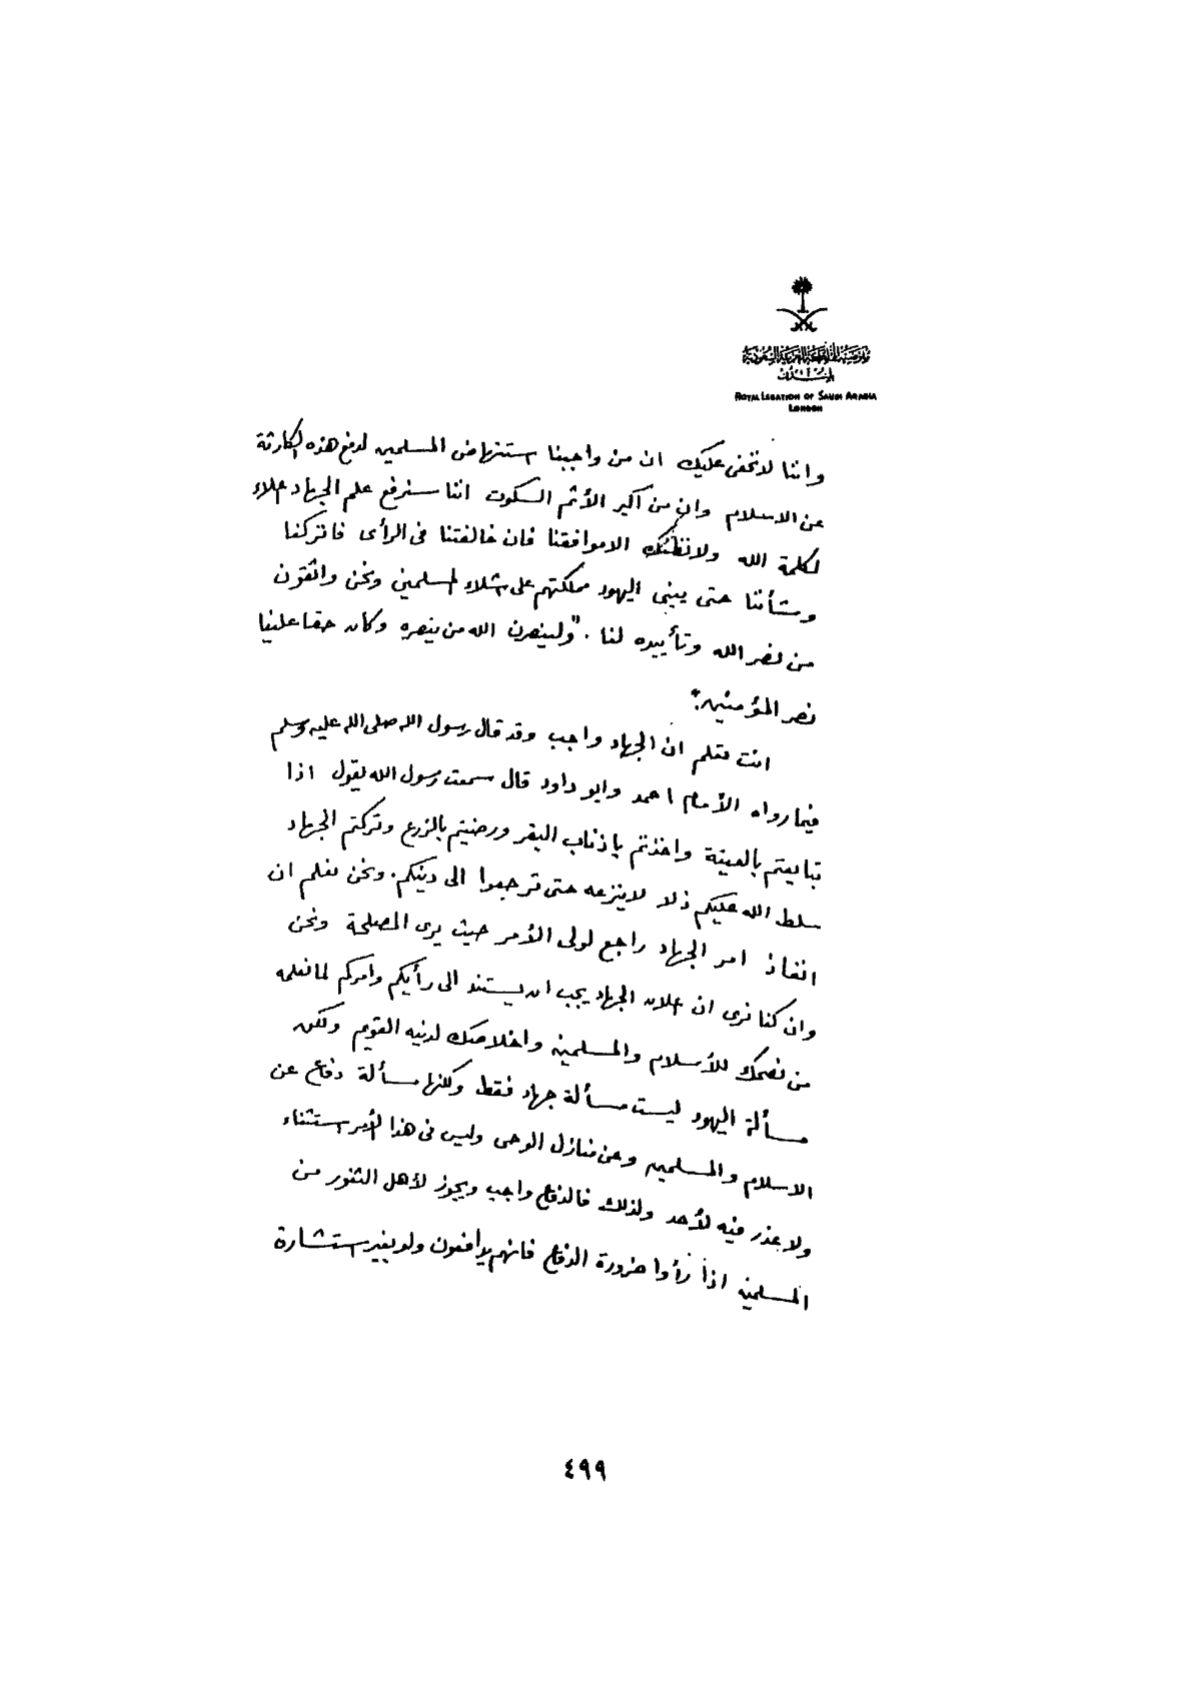 ROYAL LEGATION OF SAUDI ARABIA
LONDON
واننا لا نخفى عليك ان من واجبنا استنهاض المسلمين لدفع هذه الكارثة
عن الاسلام وان من اكبر الأثم السكوت اننا سنرفع علم الجهاد اعلاء
لكلمة الله ولا نظنك الا موافقنا فان خالفتنا فى الرأى فاتركنا
وشأننا حتى يبنى اليهود مملكتهم على اشلاء المسلمين ونحن واثقون
من نصر الله وتأييده لنا . "ولينصرن الله من ينصره وكان حقا علينا
نصر المؤمنين"
انت تعلم ان الجهاد واجب وقد قال رسول الله صلى الله عليه وسلم
فيما رواه الأمام احمد وابو داود قال سمعت رسول الله يقول اذا
تبايعتم بالعينة واخذتم باذناب البقر ورضيتم بالزرع وتركتم الجهاد
سلط الله عليكم ذلا لا ينزعه حتى ترجعوا الى دينكم . ونحن نعلم ان
انفاذ امر الجهاد راجع لولى الأمر حيث يرى المصلحة ونحن
وان كنا نرى ان اعلان الجهاد يجب ان يستند الى رأيكم وامركم لما نعلمه
من نصحك للأسلام والمسلمين واخلاصك لدينه القويم ولكن
مسألة اليهود ليست مسألة جهاد فقط ولكنها مسألة دفاع عن
الاسلام والمسلمين وعن منازل الوحى وليس فى هذا الأمر استثناء
ولا عذر فيه لأحد ولذلك فالدفاع واجب ويجوز لأهل الثغور من
المسلمين اذا رأوا ضرورة الدفاع فانهم يدافعون ولو بغير استشارة
٤٩٩